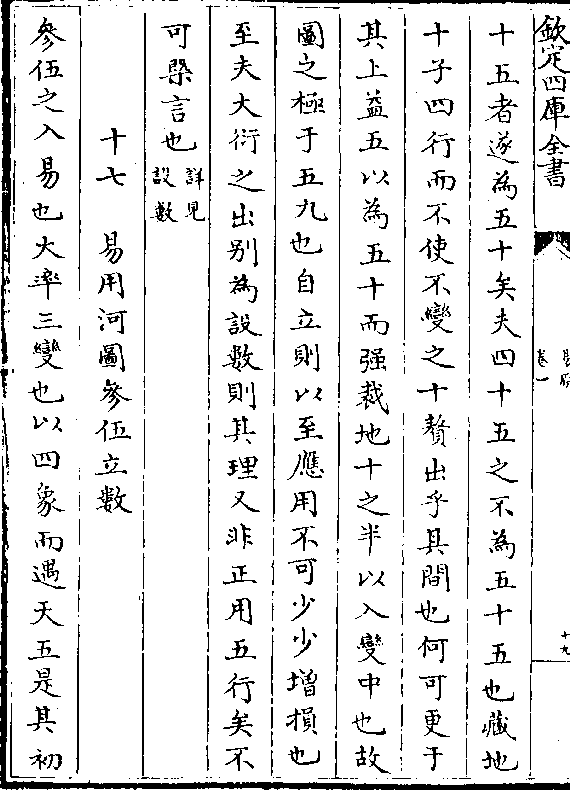 欽定四庫全書
卷一
十九
十五者遂為五十矣夫四十五之不為五十五也藏地
十子四行而不使不變之十贅出乎其間也何可更于
其上益五以為五十而强裁地十之半以入變中也故
圖之極于五九也自立則以至應用不可少少增損也
至夫大衍之出别為設數則其理又非正用五行矣不
可槩言也詳見設數
十七 易用河圖參伍立數
參伍之入易也大率三變也以四象而遇天五是其初